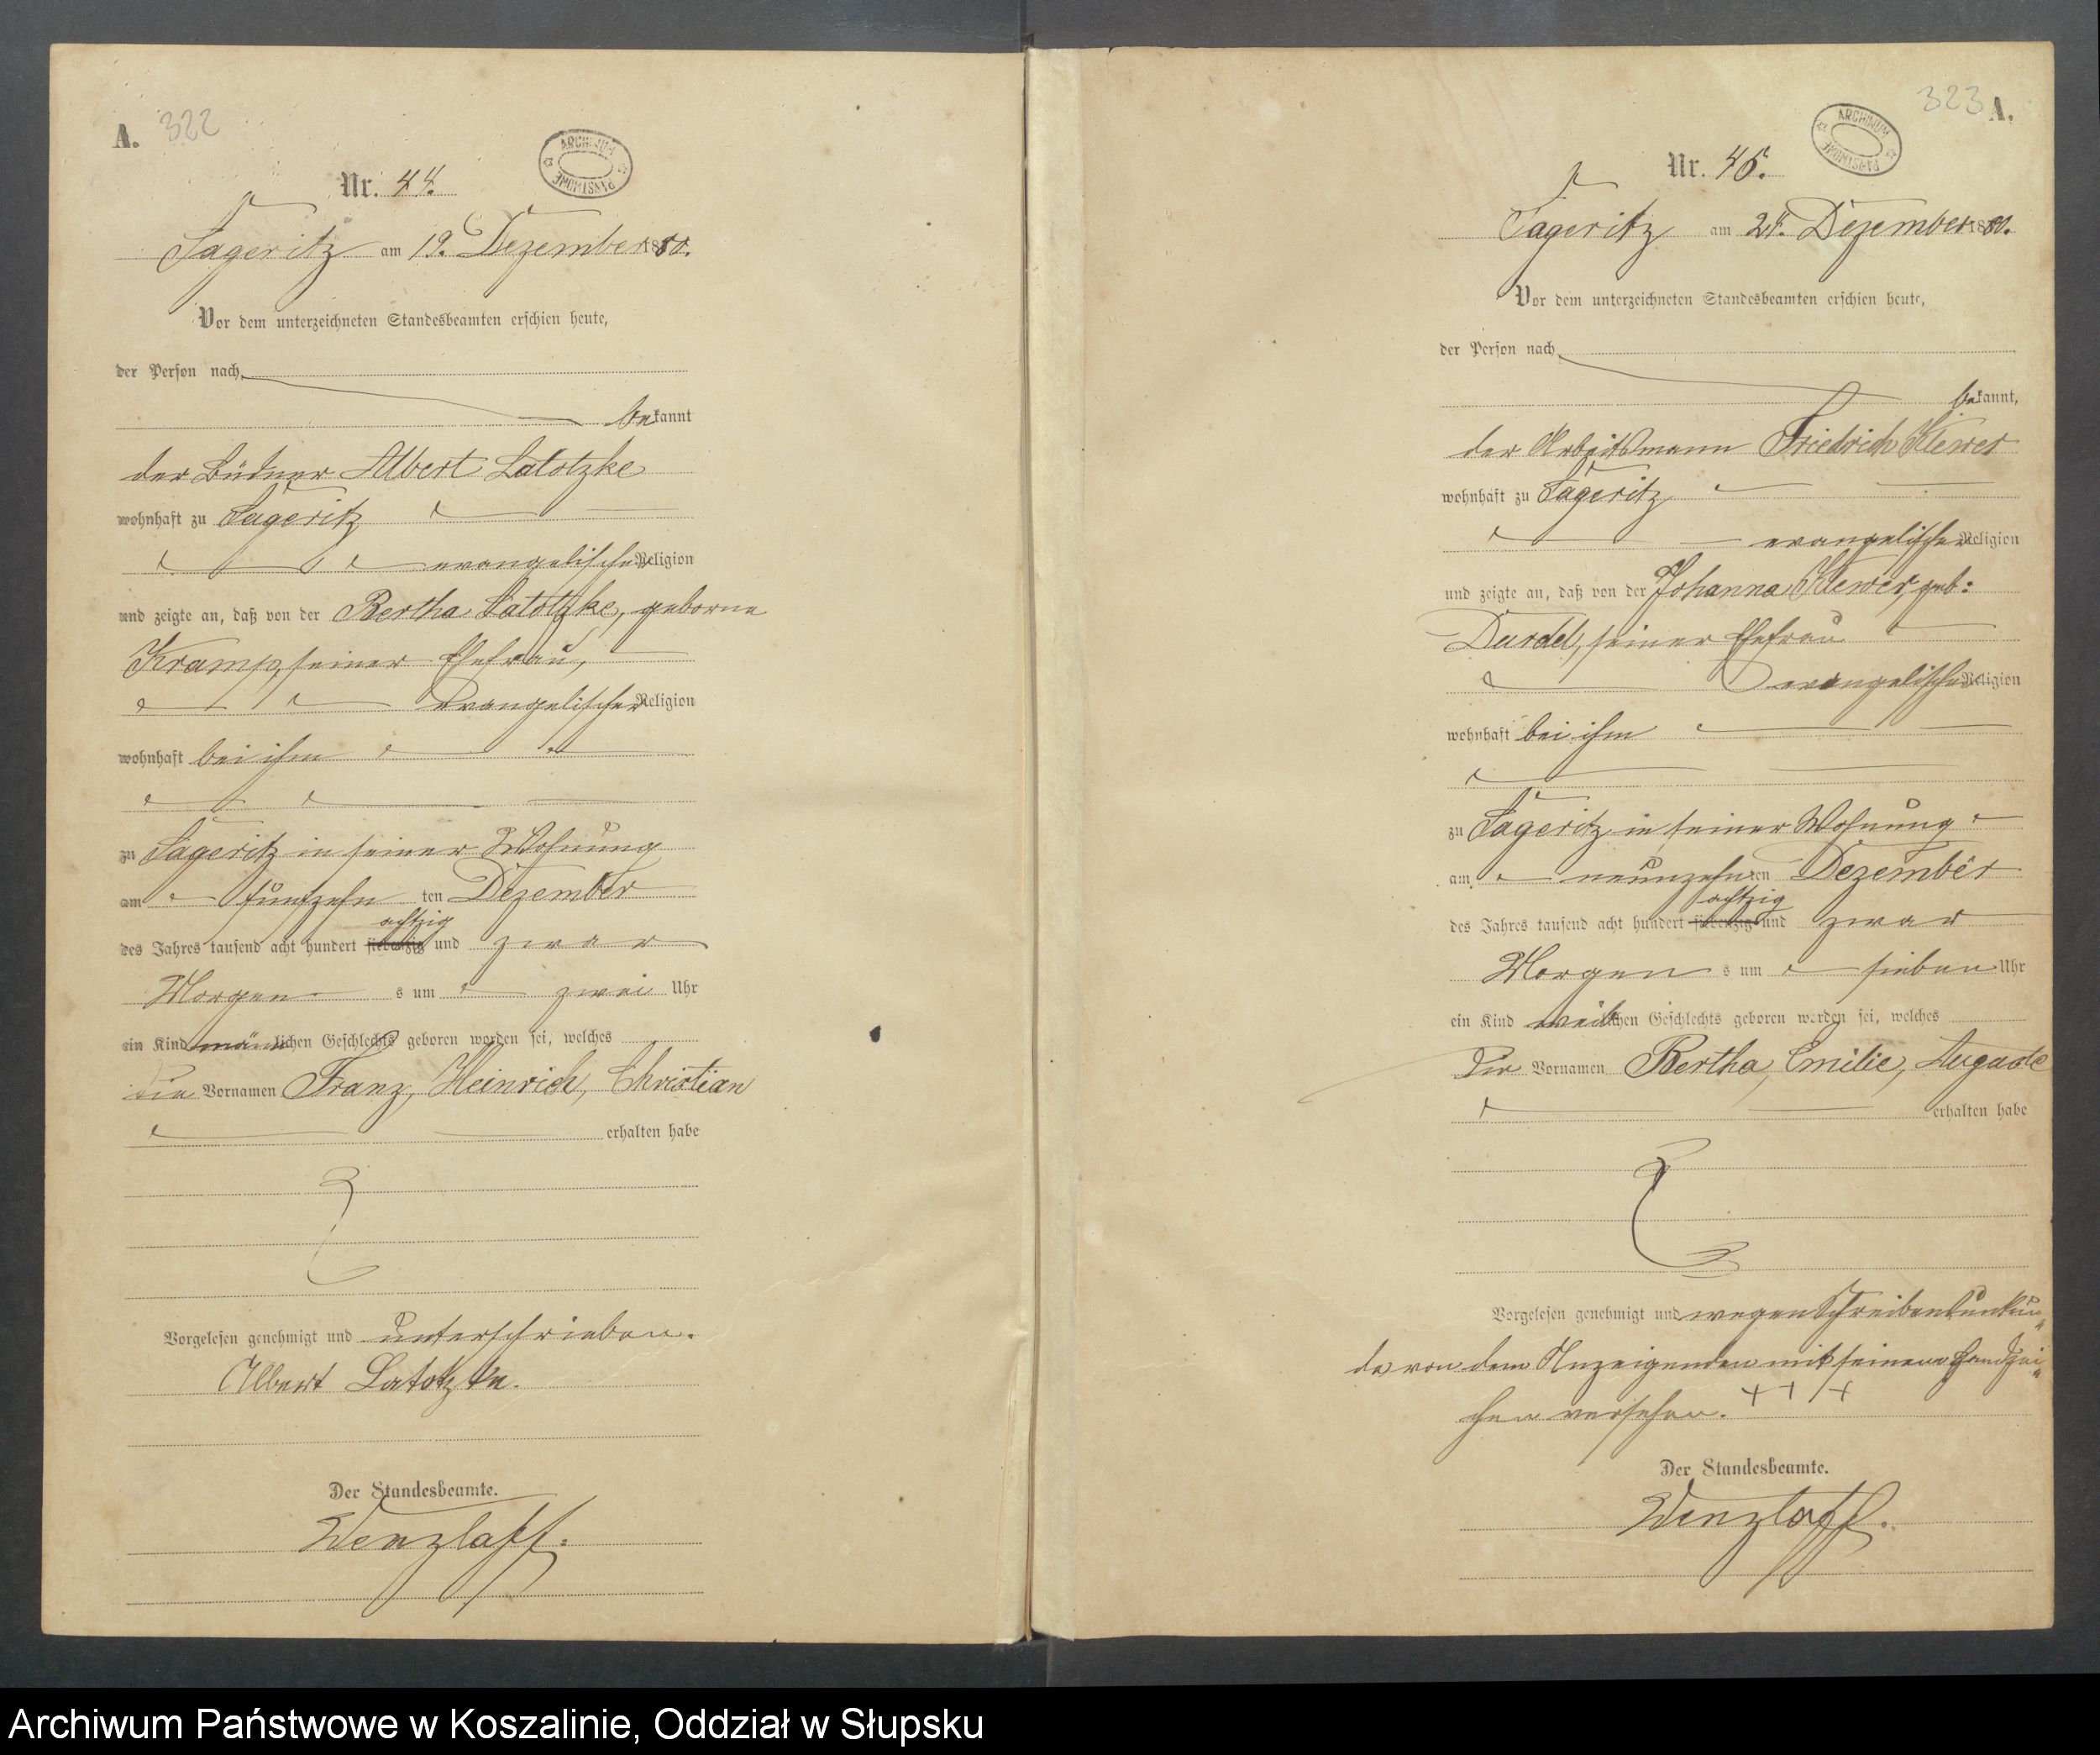 A. 322
ARCHIWUM PAŃSTWOWE
Nr. 44.
Sageritz am 19. Dezember 1880.
Vor dem unterzeichneten Standesbeamten erschien heute,
der Person nach
bekannt
der Büdner Albert Latotzke
wohnhaft zu Sageritz
evangelischer Religion
und zeigte an, daß von der Bertha Latotzke, geborne
Kramp, seiner Ehefrau,
evangelischer Religion
wohnhaft bei ihm
zu Sageritz in seiner Wohnung
am fünfzehn ten Dezember
achtzig
des Jahres tausend acht hundert siebenzig und zwar
Morgen s um zwei Uhr
ein Kind männlichen Geschlechts geboren worden sei, welches
die Vornamen Franz, Heinrich, Christian
erhalten habe
Vorgelesen genehmigt und unterschrieben.
Albert Latotzke.
Der Standesbeamte.
Wenzlaff.
323 A.
ARCHIWUM PAŃSTWOWE
Nr. 45.
Sageritz am 24. Dezember 1880.
Vor dem unterzeichneten Standesbeamten erschien heute,
der Person nach
bekannt,
der Arbeitsmann Friedrich Klewer
wohnhaft zu Sageritz
evangelischer Religion
und zeigte an, daß von der Johanna Klewer, geb:
seiner Ehefrau
evangelischer Religion
wohnhaft bei ihm
zu Sageritz in seiner Wohnung
am neunzehnten Dezember
achtzig
des Jahres tausend acht hundert siebenzig und zwar
Morgen s um sieben Uhr
ein Kind weiblichen Geschlechts geboren worden sei, welches
die Vornamen Bertha, Emilie, Auguste
erhalten habe
Vorgelesen genehmigt und wegen Schreibensunkun„
de von dem Anzeigenden mit seinem Handzei„
chen versehen. + + +
Der Standesbeamte.
Wenzlaff.
Archiwum Państwowe w Koszalinie, Oddział w Słupsku